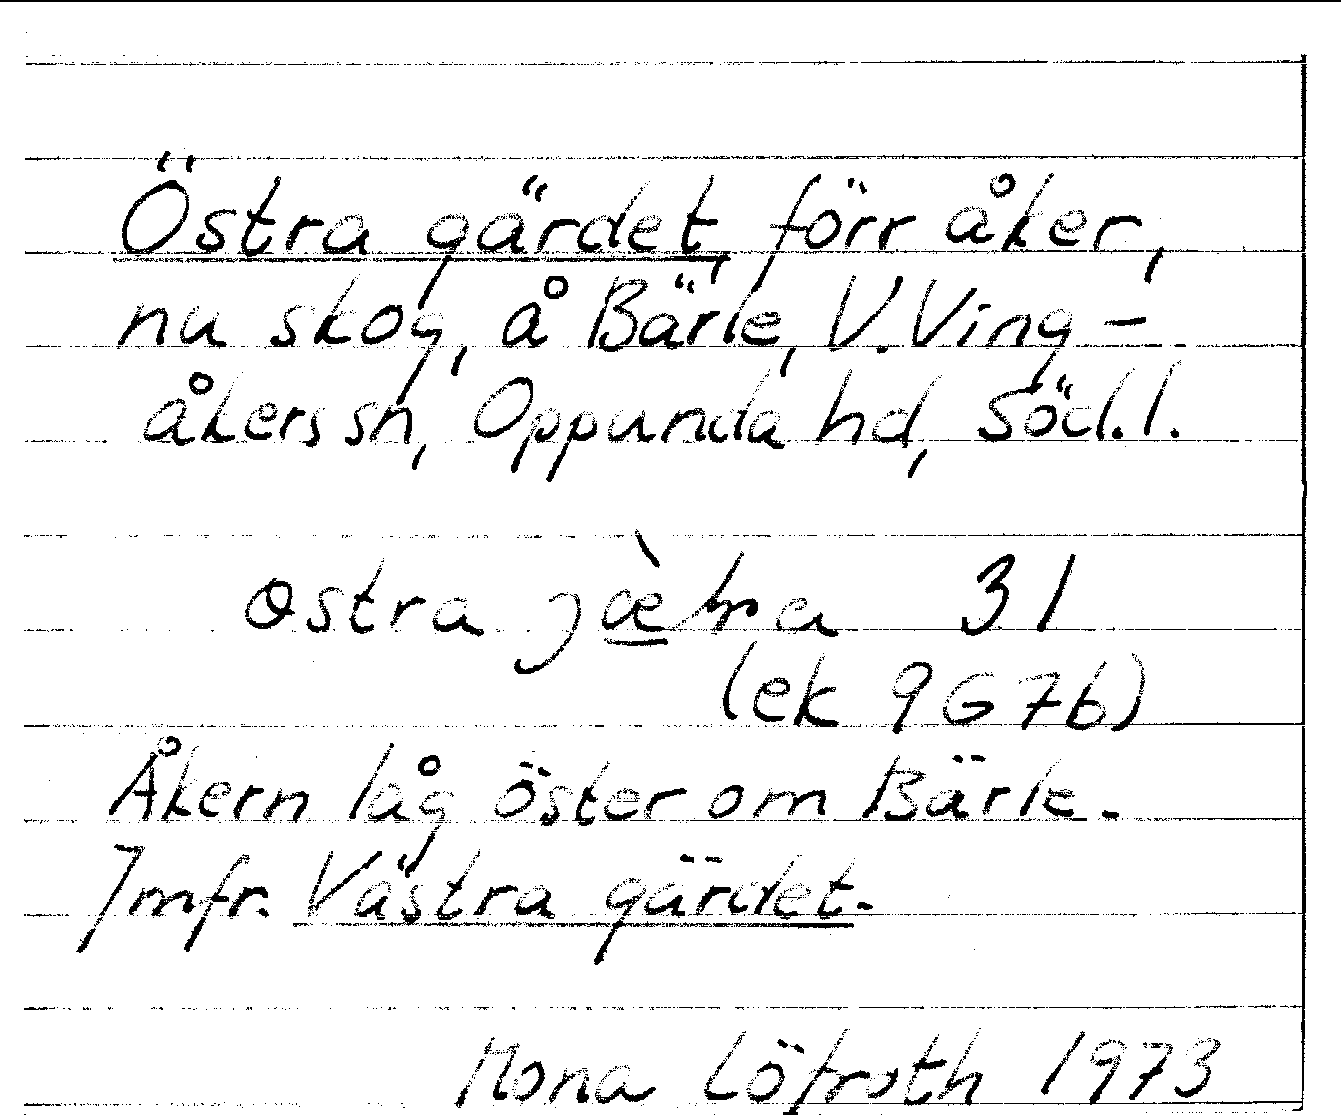 Östra gärdet, förr åker,
nu skog, å Bärle, V. Ving-
åkers sn, Oppunda hd, Söd.l.
31
(ek 9G7b)
Åkern låg öster om Bärle.
Jmfr. Västra gärdet.
Mona Löfroth 1973